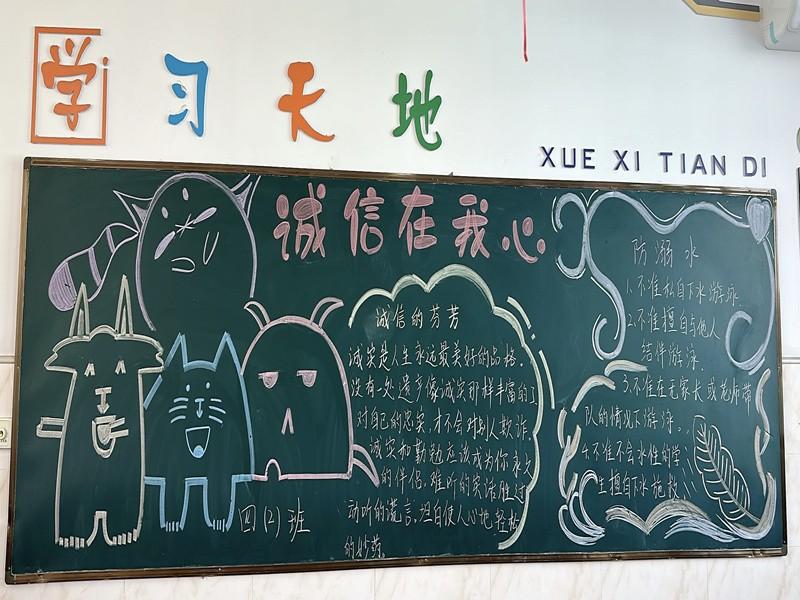 学习天地
XUE XI TIAN DI
诚信在我心
诚信的芬芳
诚实是人生永远最美好的品格.
没有一处遗产像诚实那样丰富的了
对自己的忠实,才不会对别人欺诈.
诚实和勤勉应该成为你永久
的伴侣.难听的实话胜过
动听的谎言.坦白使人心地轻松
的妙药.
四(2)班
防溺水
1.不准私自下水游泳.
2.不准擅自与他人
结伴游泳.
3.不准在无家长或老师带
队的情况下游泳.
4.不准不会水性的学
生擅自下水施救.